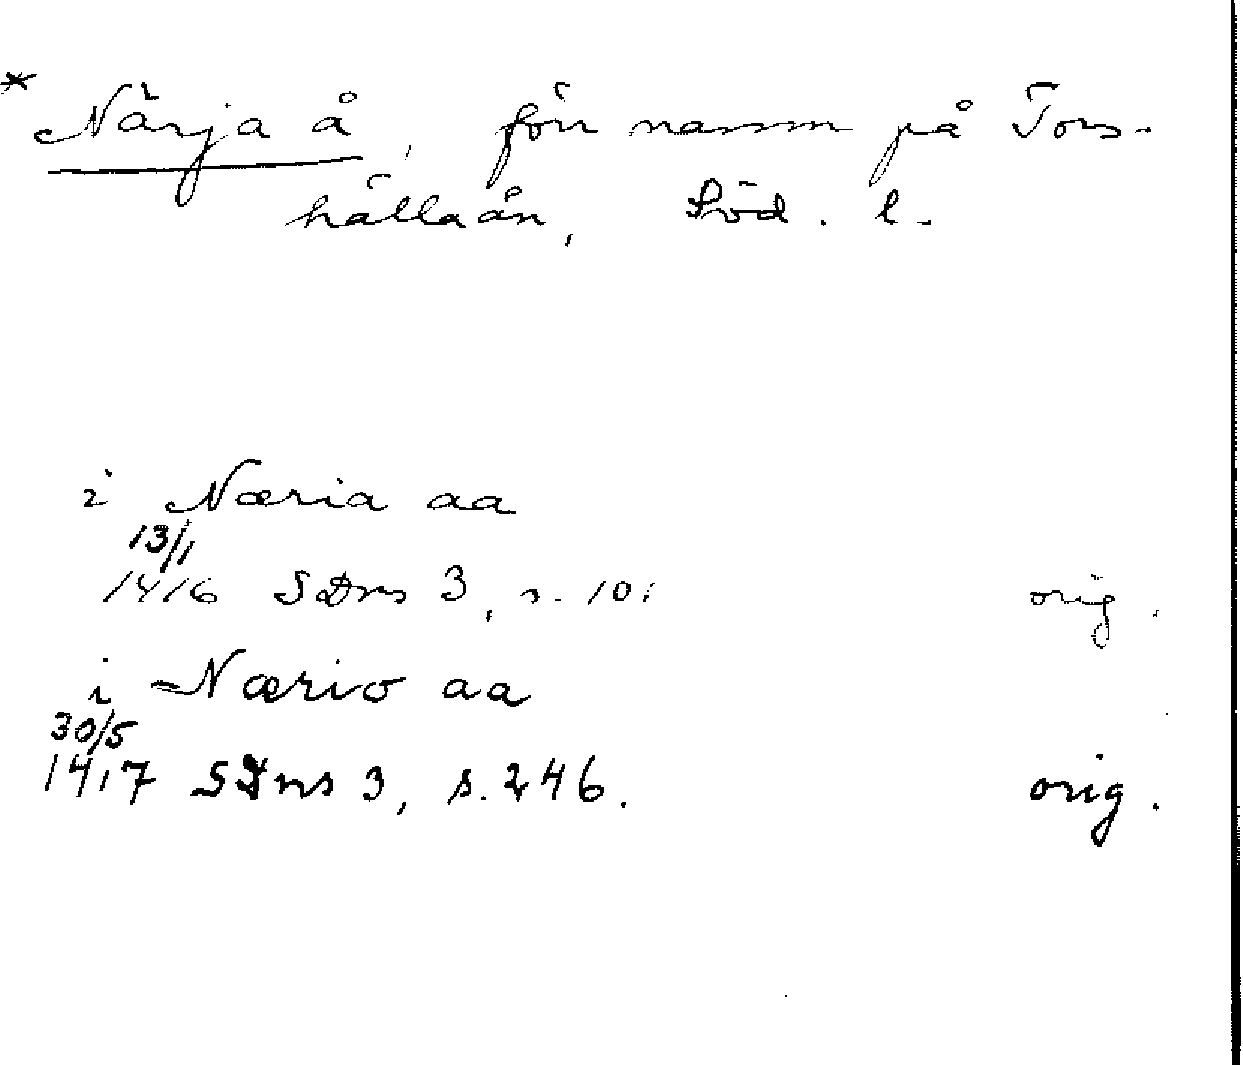 * Närja å, förr namn på Tors-
hällaån, Söd. l.
i Næria aa
13/1
1416 SDns 3, s. 10;
orig.
i Nærio aa
30/5
1417 SDns 3, s. 246.
orig.